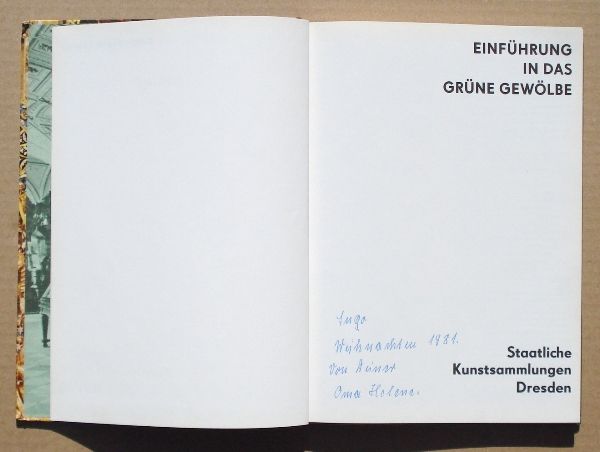 EINFÜHRUNG
IN DAS
GRÜNE GEWÖLBE
Weihnachten 1981.
Von Deiner
Oma Helene.
Staatliche
Kunstsammlungen
Dresden